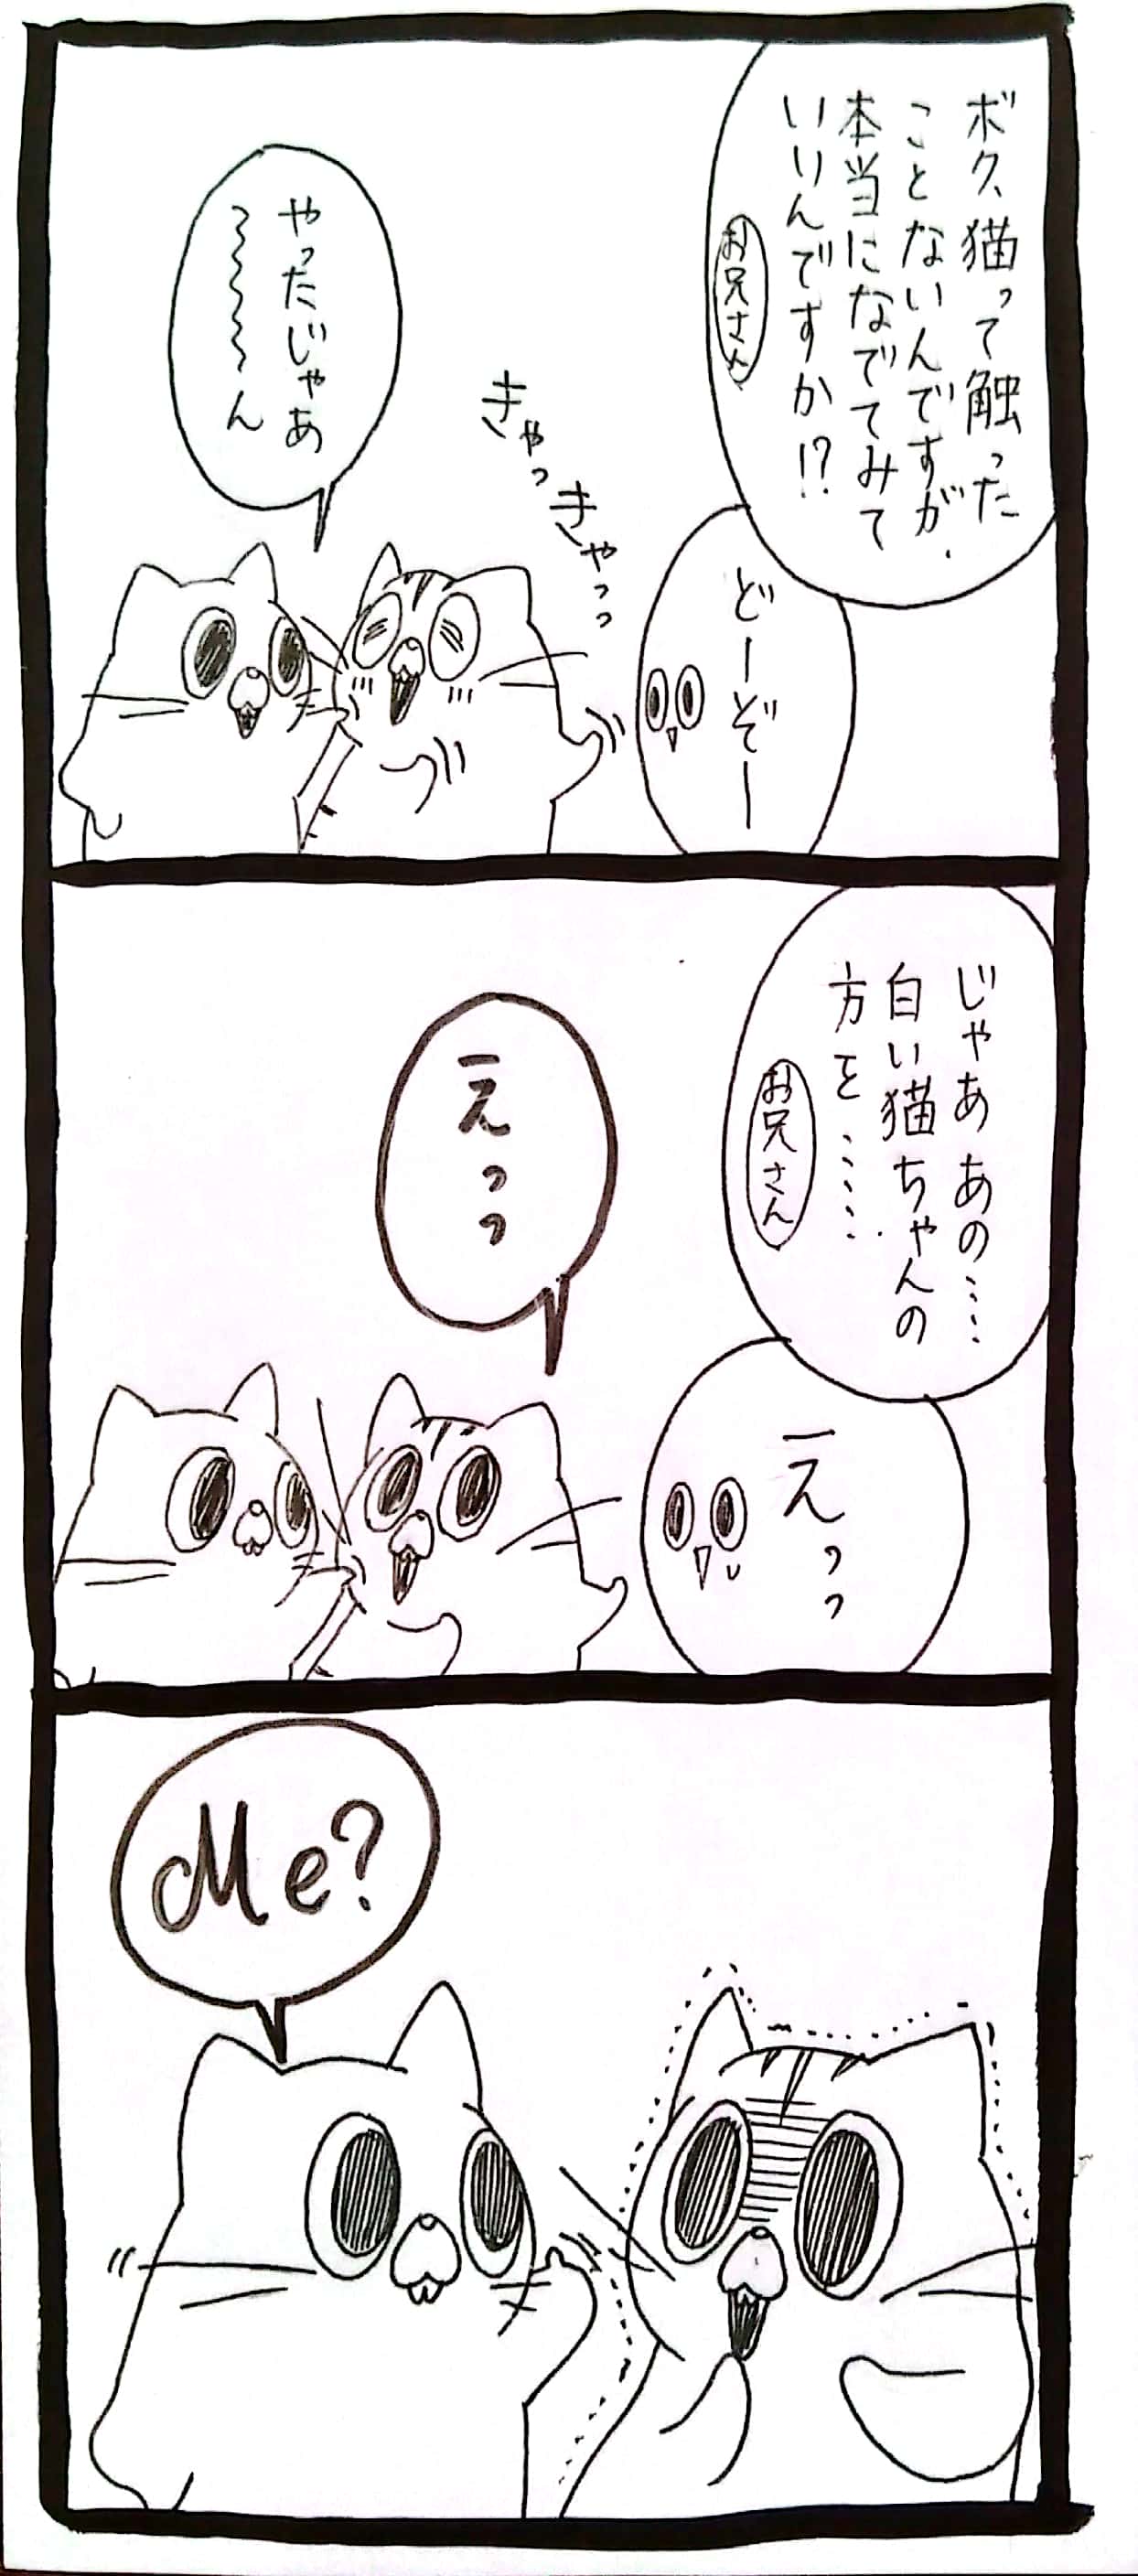 ボク、猫って触った
ことないんですが、
本当になでてみて
いいんですか!?
お兄さん
どーぞー
きゃっ
きゃっっ
やったじゃあ
〜〜〜〜〜ん
じゃああの……
白い猫ちゃんの
方を……
お兄さん
えっっ
えっっ
Me?